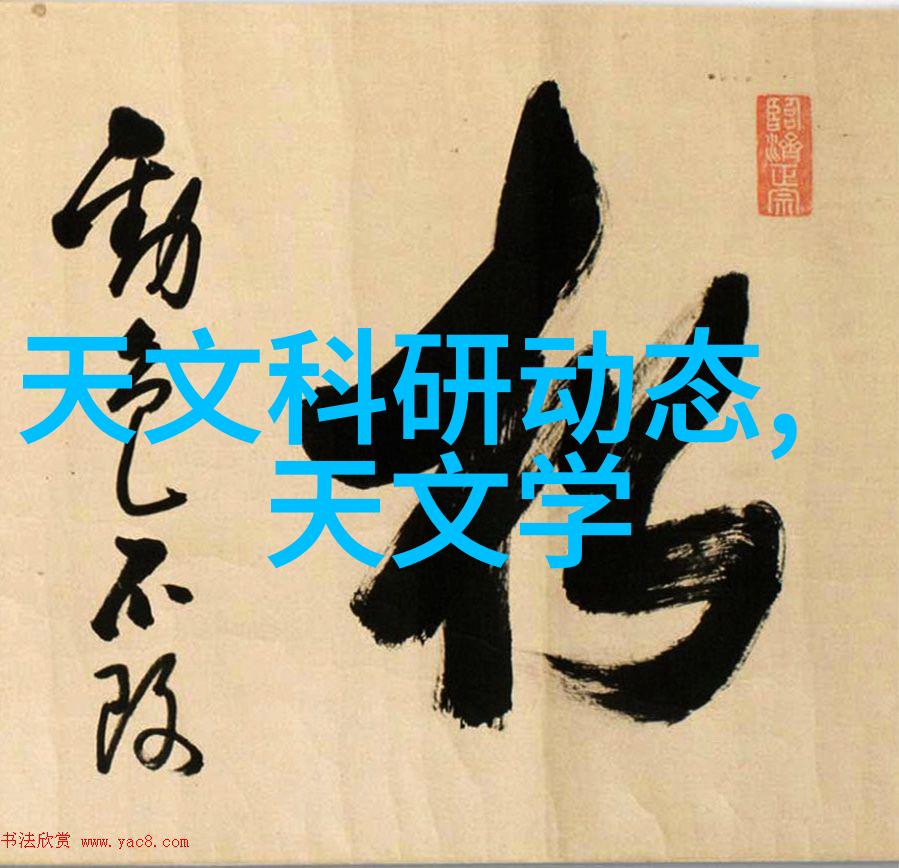 天文科研动态,
天文学
臨濟正宗
不改
书法欣赏 www.yac8.com